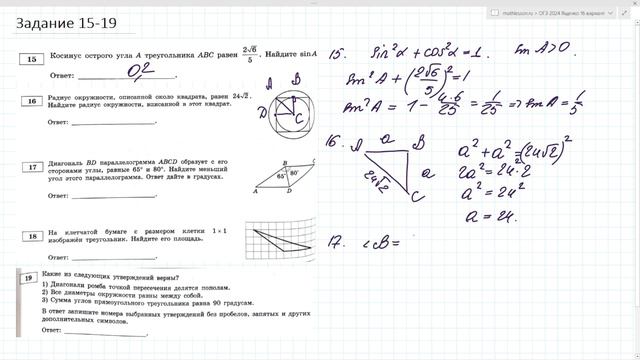 mathlesson.ru > ОГЭ 2024 Ященко 36 вариантов
Задание 15-19
15 Косинус острого угла A треугольника ABC равен 2√6/5. Найдите sin A
Ответ: 0,2
16 Радиус окружности, описанной около квадрата, равен 24√2.
Найдите радиус окружности, вписанной в этот квадрат.
Ответ:
A B
D C
17 Диагональ BD параллелограмма ABCD образует с его
сторонами углы, равные 65° и 80°. Найдите меньший
угол этого параллелограмма. Ответ дайте в градусах.
Ответ:
B C
65° 80°
A D
18 На клетчатой бумаге с размером клетки 1×1
изображён треугольник. Найдите его площадь.
Ответ:
19 Какие из следующих утверждений верны?
1) Диагонали ромба точкой пересечения делятся пополам.
2) Все диаметры окружности равны между собой.
3) Сумма углов прямоугольного треугольника равна 90 градусам.
В ответ запишите номера выбранных утверждений без пробелов, запятых и других
дополнительных символов.
Ответ:
15. sin²α + cos²α = 1. sin A > 0.
sin²A + (2√6/5)² = 1
sin²A = 1 - 4·6/25 = 1/25 => sin A = 1/5
16. A a B
a
24√2
C
a² + a² = (24√2)²
2a² = 24²·2
a² = 24²
a = 24.
17. ∠B =